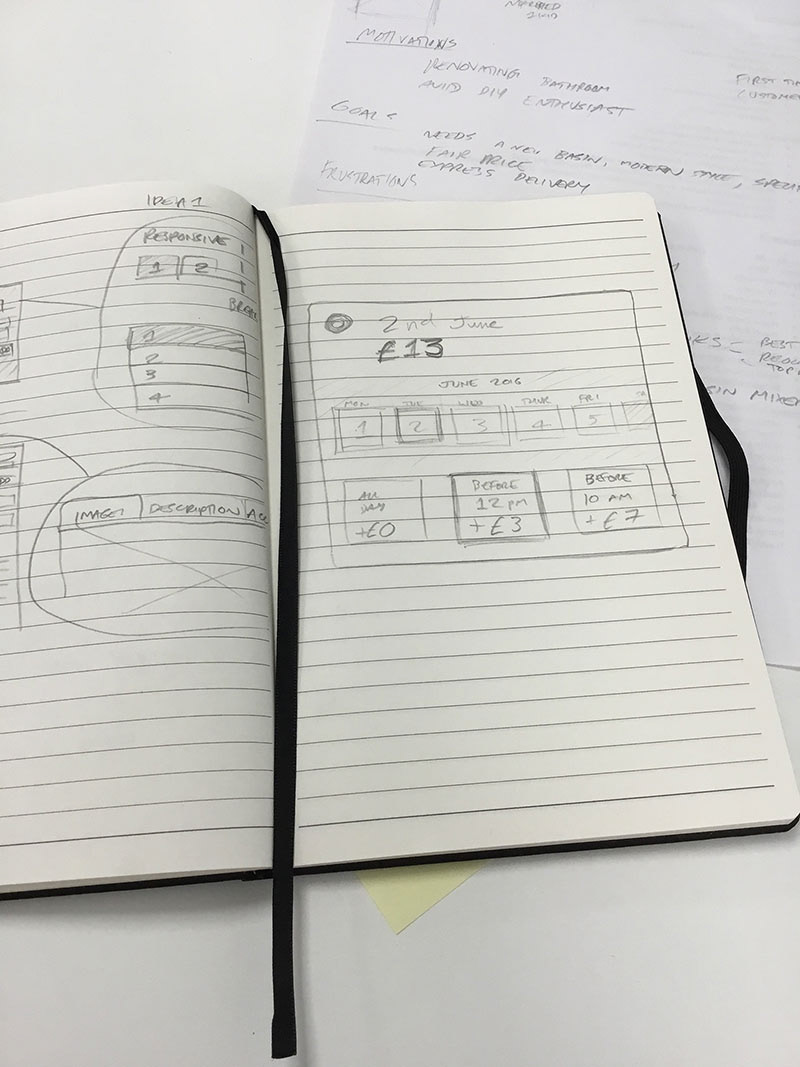 MARRIED
MOTIVATIONS
RENOVATING BATHROOM
AVID DIY ENTHUSIAST
FIRST TIM
CUSTOME
GOALS
NEEDS A NEW BASIN, MODERN STYLE, SPEC
FAIR PRICE
EXPRESS DELIVERY
FRUSTRATIONS
BEST
TOP
SIN MIXE
IDEA 1
RESPONSIVE
1 2
BREA
1
2
3
4
IMAGE DESCRIPTION AC
2nd June
£13
JUNE 2016
MON TUE WED THUR FRI
1 2 3 4 5
ALL
DAY
+£0
BEFORE
12 pm
+£3
BEFORE
10 AM
+£7